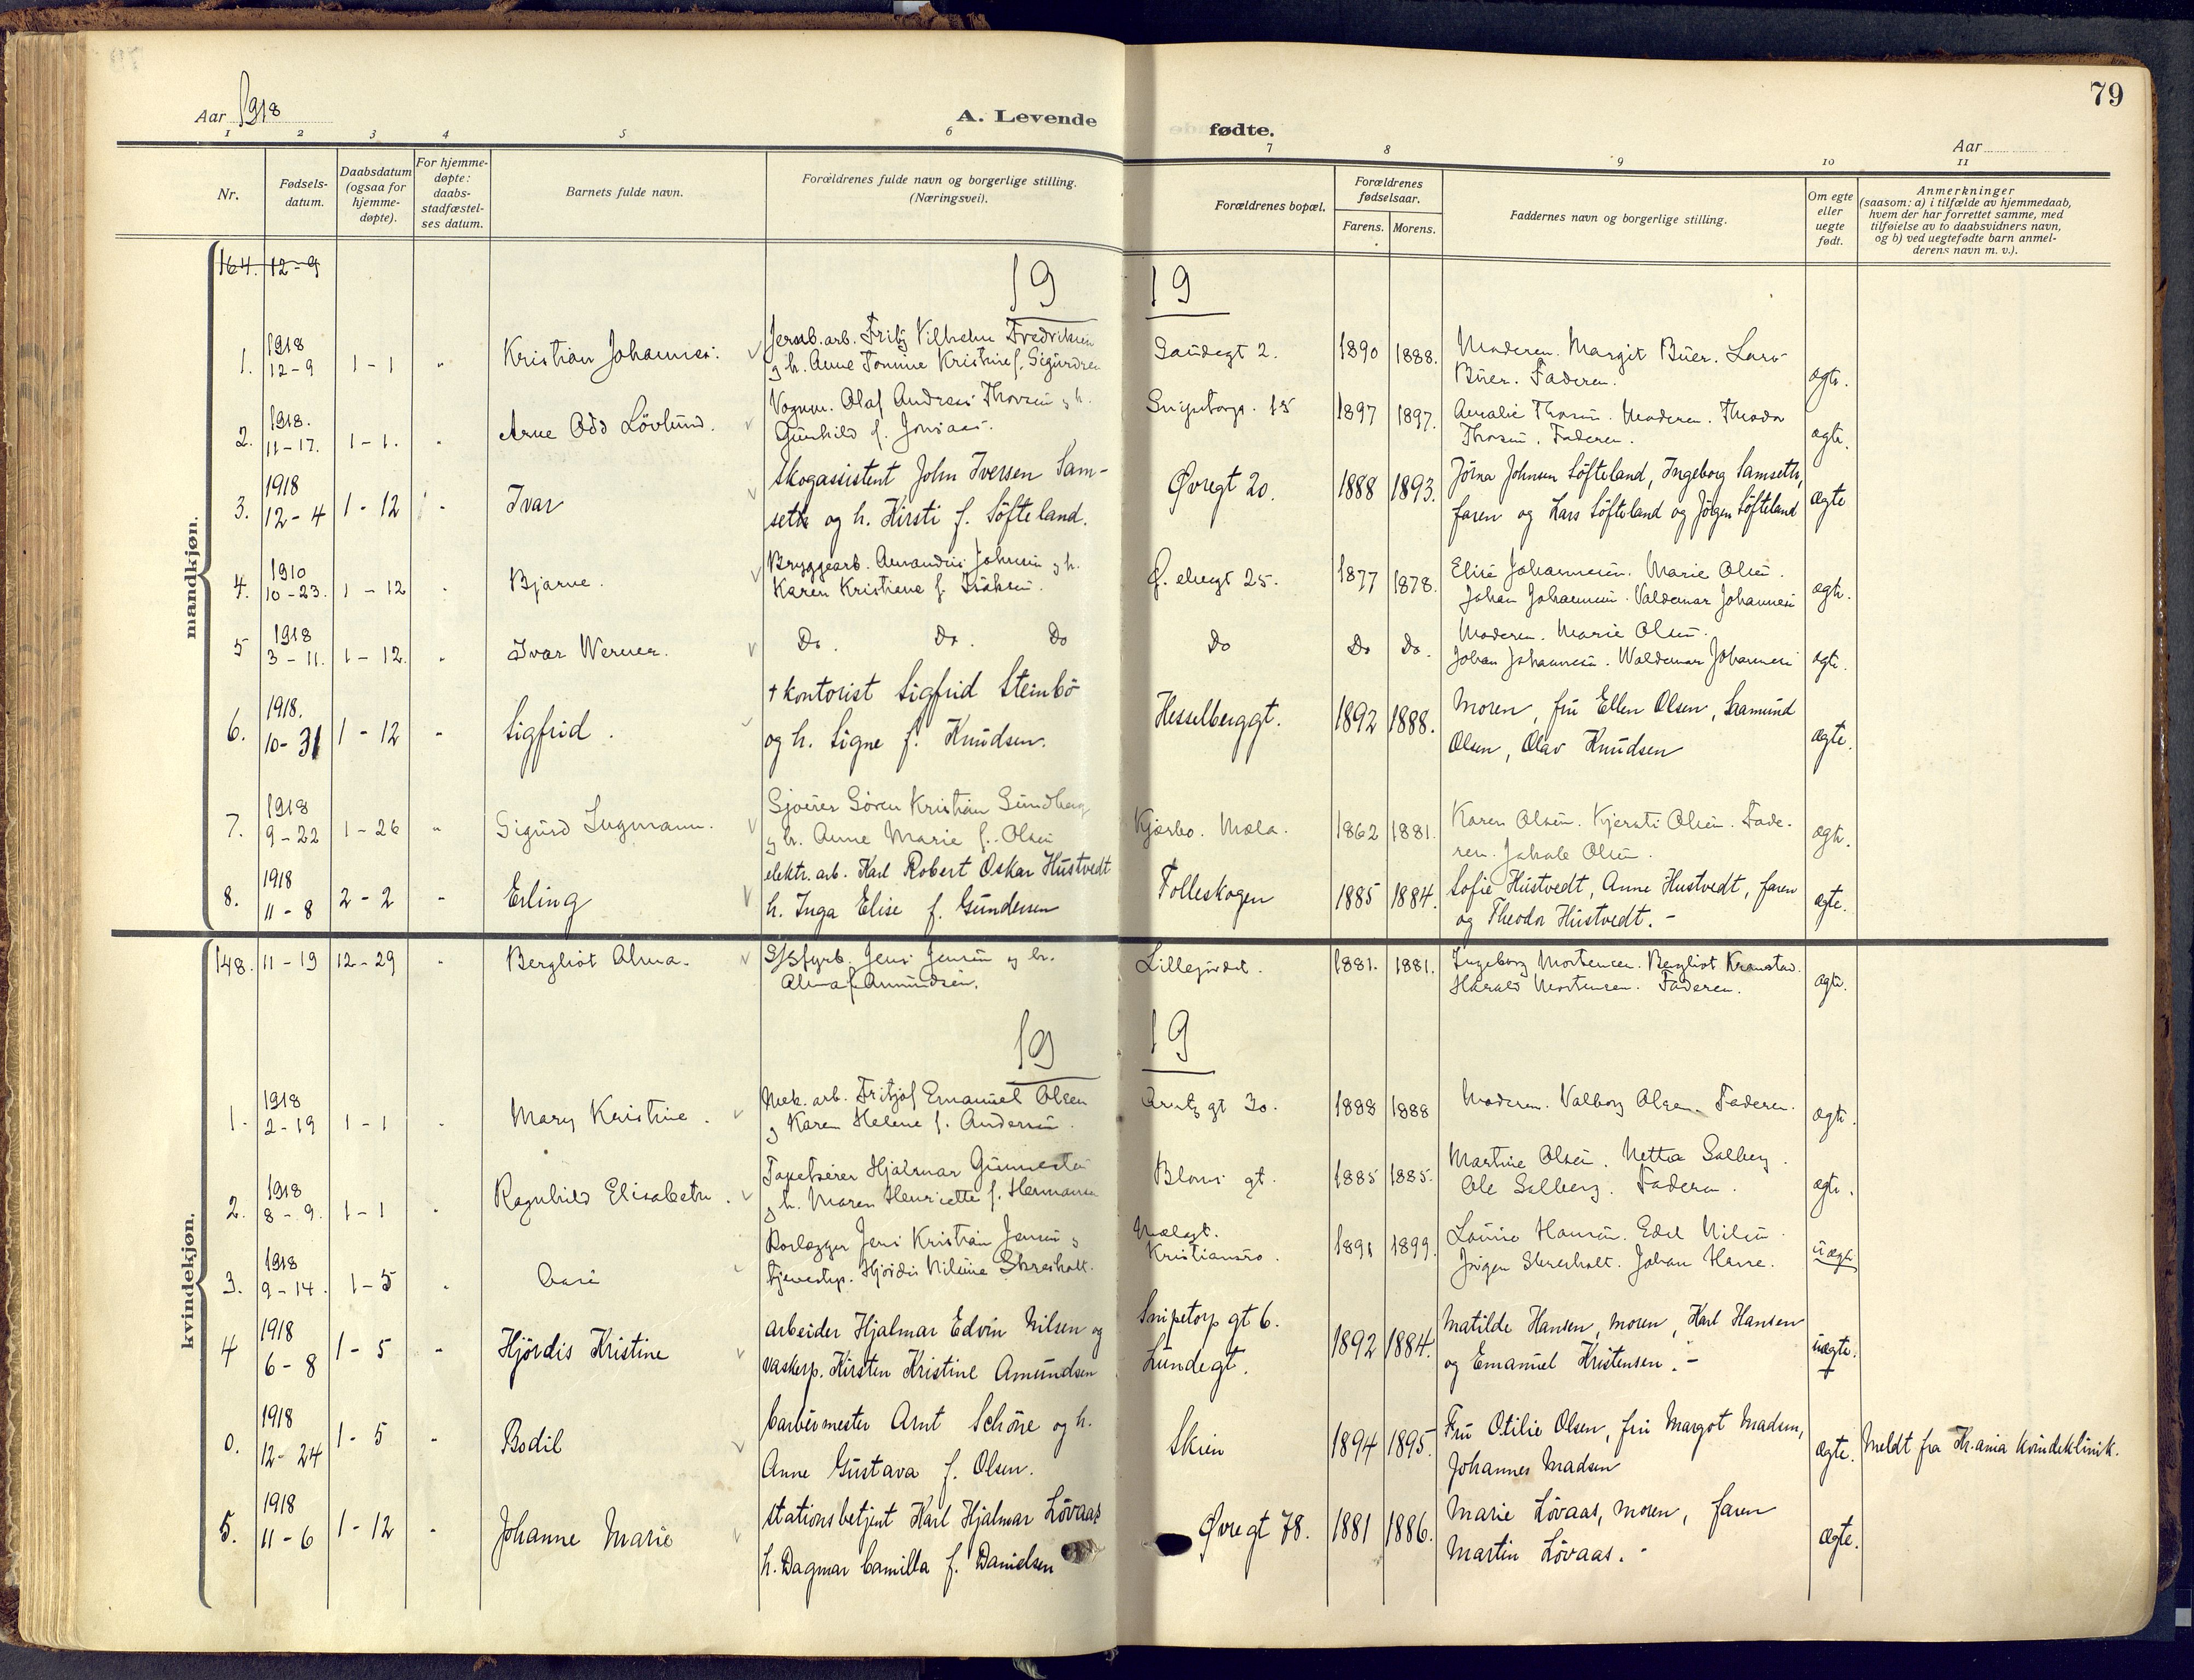 79
Aar 1918
A. Levende
fødte.
Aar
1 2 3 4 5 6 7 8 9 10 11
Nr.
Fødsels-
datum.
Daabsdatum
(ogsaa for
hjemme-
døpte).
For hjemme-
døpte:
daabs-
stadfæstel-
ses datum.
Barnets fulde navn.
Forældrenes fulde navn og borgerlige stilling.
(Næringsvei).
Forældrenes bopæl.
Forældrenes
fødselsaar.
Farens. Morens.
Faddernes navn og borgerlige stilling.
Om egte
eller
uegte
født.
Anmerkninger
(saasom: a) i tilfælde av hjemmedaab,
hvem der har forrettet samme, med
tilføielse av to daabsvidners navn,
og b) ved uegtefødte barn anmel-
derens navn m. v.).
mandkjøn.
164. 12-9
19 19
1. 1918 12-9 1-1 " Kristian Johannes.
Jernb.arb. Fritz Vilhelm Fredriksen
og h. Anne Tomine Kristine f. Sigurdsen
Gaudegt 2. 1890 1888.
Moderen. Margit Buer. Lars
Buer. Faderen. ægte.
2. 1918. 11-17. 1-1. " Arne Odd Løvlund.
Vognm. Olaf Andreas Thorsen og h.
Gunhild f. Jonsaas.
Snipetorp. 15 1897 1897.
Amalie Thorsen. Moderen. Theodor
Thorsen. Faderen. ægte.
3. 1918 12-4 1-12 " Ivar
Skogassistent John Iversen Sam-
seth og h. Kirsti f. Søfteland.
Øvregt 20. 1888 1893.
Jørna Johnsen Søfteland, Ingeborg Samseth,
faren og Lars Søfteland og Jørgen Søfteland ægte
4. 1910 10-23. 1-12 " Bjarne.
Bryggearb. Amandus Johnsen og h.
Karen Kristiane f. Isaksen.
Ø. elvegt 25. 1877 1878.
Elise Johannesen. Marie Olsen.
Johan Johannesen. Valdemar Johannesen ægte.
5 1918 3-11. 1-12. " Ivar Werner.
Do. Do. Do
Do Do Do.
Moderen. Marie Olsen.
Johan Johannesen. Waldemar Johannesen ægte.
6. 1918. 10-31 1-12 " Sigfrid.
+ kontorist Sigfrid Steinbö
og h. Signe f. Knudsen.
Hesselberggt. 1892 1888.
Moren, fru Ellen Olsen, Aamund
Olsen, Olav Knudsen ægte.
7. 1918 9-22 1-26 " Sigurd Ingmann.
Gjørtler Søren Kristian Sundberg
og h. Anne Marie f. Olsen
Kjørbo. Mæla. 1862 1881.
Karen Olsen. Kjersti Olsen. Fade-
ren. Jakob Olsen. ægte.
8. 1918 11-8 2-2 " Erling
elektr. arb. Karl Robert Oskar Hustvedt
h. Inga Elise f. Gundersen
Folleskogen 1885 1884.
Sofie Hustvedt, Anne Hustvedt, faren
og Theodor Hustvedt. - ægte.
kvindekjøn.
148. 11-19 12-29 " Bergliot Alma.
Jens Jensen og h.
Alma f. Amundsen.
Lillegjordet. 1881. 1881.
Ingeborg Mortensen. Bergliot Kramstad.
Harald Mortensen. Faderen. ægte.
19 19
1. 1918 2-19 1-1 " Mary Kristine.
Mek. arb. Fritjof Emanuel Olsen
og Karen Helene f. Andersen.
gt 30. 1888 1888
Moderen. Valborg Olsen. Faderen. ægte.
2. 1918 8-9. 1-1 " Ragnhild Elisabeth.
Tapetserer Hjalmar Gunnestad
og h. Maren Henriette f. Hermansen
Bloms gt. 1885 1885.
Martine Olsen. Netta Solberg.
Ole Solberg. Faderen. ægte.
3. 1918 9-14. 1-5 " Aase
Rørlægger Jens Kristian Jensen og
tjenestep. Hjørdis Nilsine Skreholt.
Mælagt.
Kristiansro. 1891 1899.
Lovise Hansen. Edel Nilsen.
Jørgen Skreholt. Johan Hansen. uægte
4 1918 6-8 1-5 " Hjördis Kristine
arbeider Hjalmar Edvin Nilsen og
vaskerp. Kirsten Kristine Amundsen
Snipetorp gt 6.
Lundegt. 1892 1884.
Matilde Hansen, moren, Karl Hansen
og Emanuel Kristensen. - uægte.
0. 1918 12-24 1-5 " Bodil
barbermester Arnt Schøne og h.
Anne Gustava f. Olsen.
Skien 1894 1895.
Fru Otilie Olsen, fru Margot Madsen,
Johannes Madsen ægte. Meldt fra Kr.ania kvindeklinik.
5. 1918 11-6 1-12 " Johanne Marie
stationsbetjent Karl Hjalmar Lövaas
h. Dagmar Camilla f. Danielsen
Øvregt 78. 1881 1886.
Marie Lövaas, moren, faren
Martin Lövaas. - ægte.